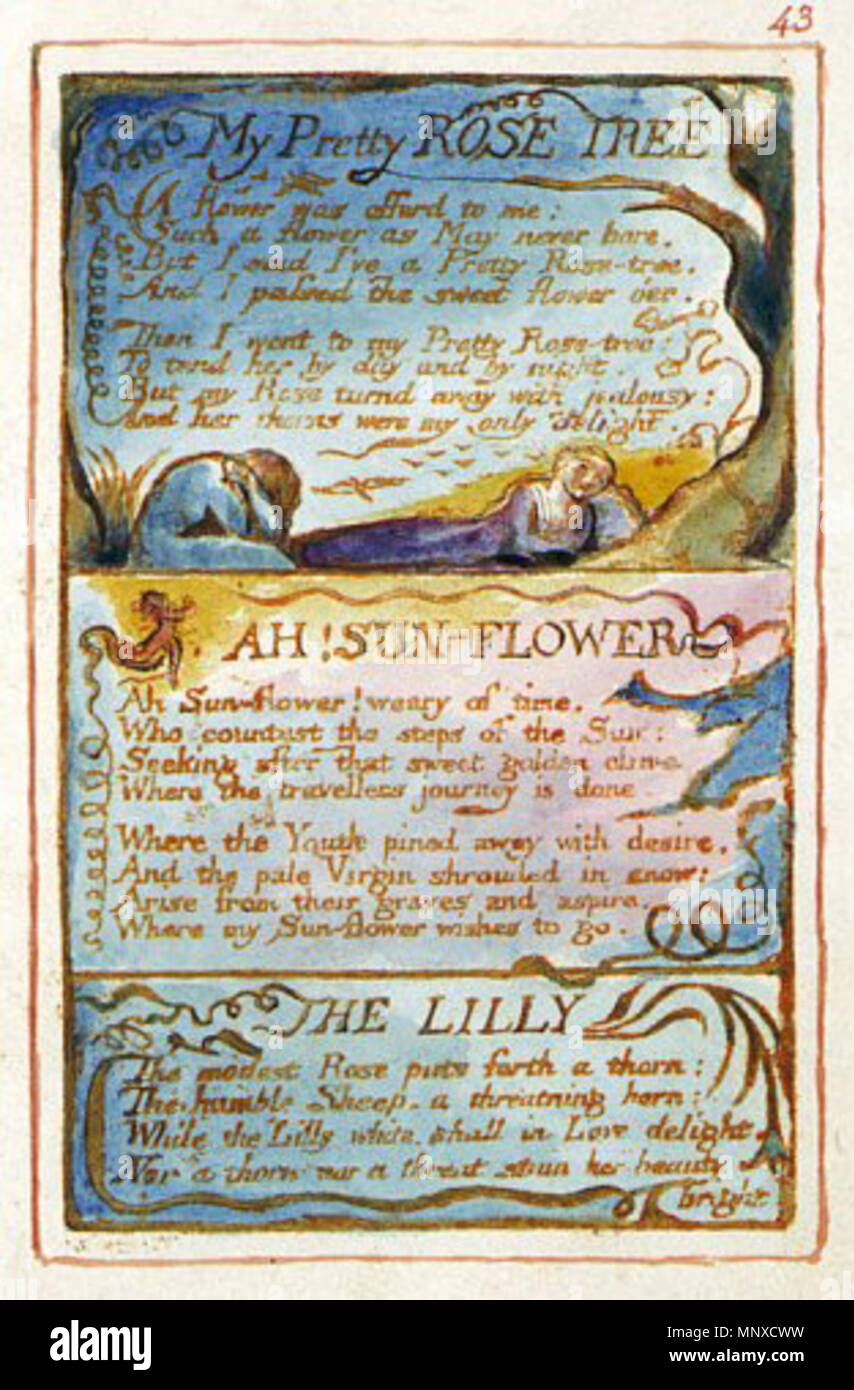 43
My Pretty ROSE TREE
A flower was offerd to me:
Such a flower as May never bore.
But I said I've a Pretty Rose-tree.
And I passed the sweet flower o'er.
Then I went to my Pretty Rose-tree:
To tend her by day and by night.
But my Rose turnd away with jealousy:
And her thorns were my only delight.
AH! SUN-FLOWER
Ah Sun-flower! weary of time.
Who countest the steps of the Sun:
Seeking after that sweet golden clime
Where the travellers journey is done.
Where the Youth pined away with desire,
And the pale Virgin shrouded in snow:
Arise from their graves and aspire,
Where my Sun-flower wishes to go.
THE LILLY
The modest Rose puts forth a thorn:
The humble Sheep. a threatning horn:
While the Lilly white, shall in Love delight,
Nor a thorn nor a threat stain her beauty
bright
alamy
Image ID: MNXCWW
www.alamy.com